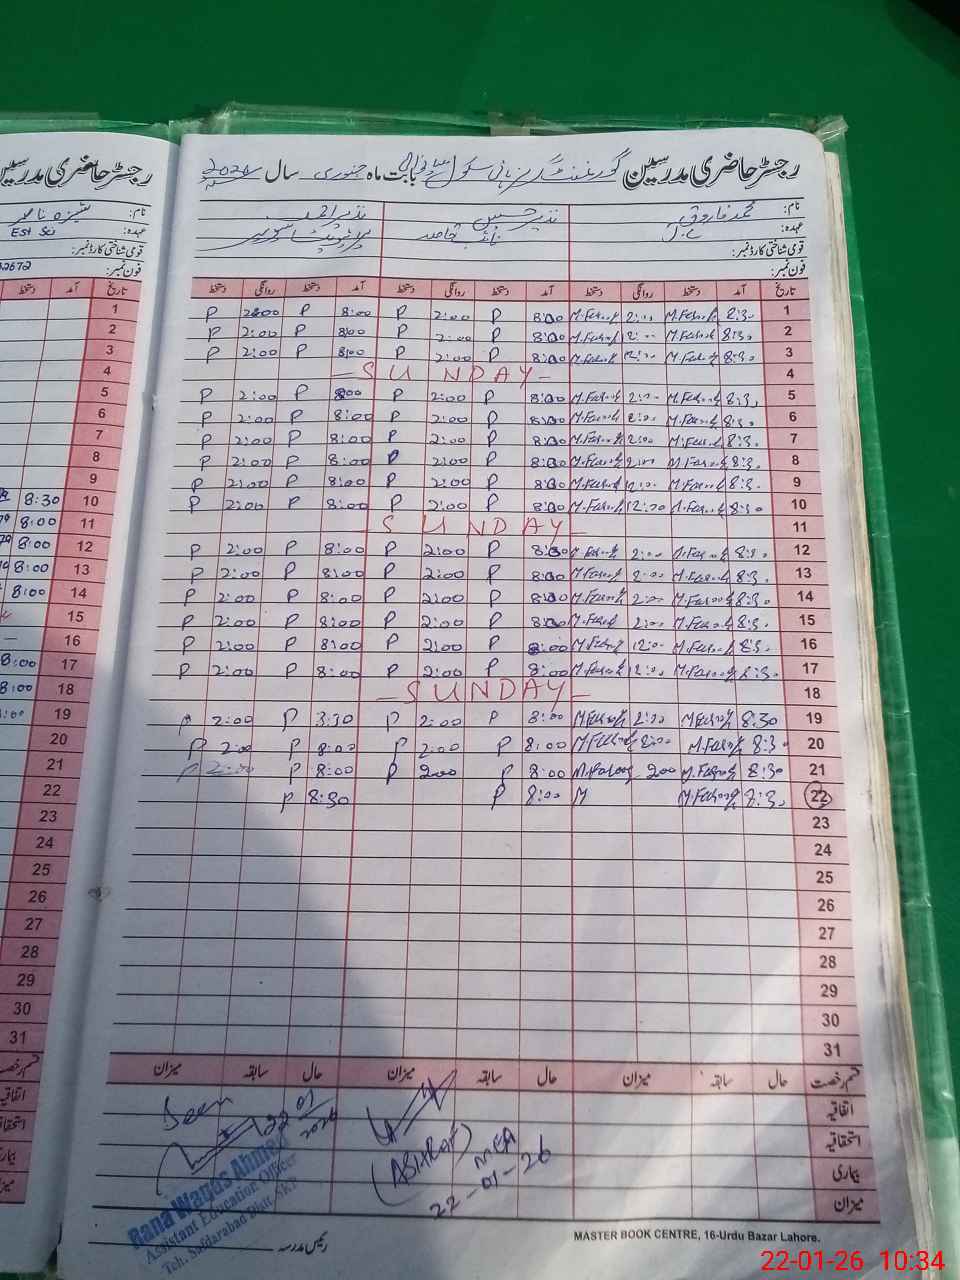 رجسٹر حاضری مدرسین گورنمنٹ گرلز ہائی سکول بابت ماہ جنوری سال 2026
نام: محمد فاروق نذیر حسین نذیر احمد
عہدہ: J.C نائب قاصد
قومی شناختی کارڈ نمبر:
فون نمبر:
تاریخ آمد دستخط روانگی دستخط آمد دستخط روانگی دستخط آمد دستخط روانگی دستخط
1 8:30 M.Farooq 2:00 M.Farooq 8:00 P 2:00 P 8:00 P 2:00 P
2 8:30 M.Farooq 2:00 M.Farooq 8:00 P 2:00 P 8:00 P 2:00 P
3 8:30 M.Farooq 12:00 M.Farooq 8:00 P 2:00 P 8:00 P 2:00 P
4 - SUNDAY -
5 8:30 M.Farooq 2:00 M.Farooq 8:00 P 2:00 P 8:00 P 2:00 P
6 8:30 M.Farooq 2:00 M.Farooq 8:00 P 2:00 P 8:00 P 2:00 P
7 8:30 M.Farooq 2:00 M.Farooq 8:00 P 2:00 P 8:00 P 2:00 P
8 8:30 M.Farooq 2:00 M.Farooq 8:00 P 2:00 P 8:00 P 2:00 P
9 8:30 M.Farooq 12:00 M.Farooq 8:00 P 2:00 P 8:00 P 2:00 P
10 8:30 M.Farooq 12:00 M.Farooq 8:00 P 2:00 P 8:00 P 2:00 P
11 - SUNDAY -
12 8:30 M.Farooq 2:00 M.Farooq 8:00 P 2:00 P 8:00 P 2:00 P
13 8:30 M.Farooq 2:00 M.Farooq 8:00 P 2:00 P 8:00 P 2:00 P
14 8:30 M.Farooq 2:00 M.Farooq 8:00 P 2:00 P 8:00 P 2:00 P
15 8:30 M.Farooq 2:00 M.Farooq 8:00 P 2:00 P 8:00 P 2:00 P
16 8:30 M.Farooq 12:00 M.Farooq 8:00 P 2:00 P 8:00 P 2:00 P
17 8:30 M.Farooq 12:00 M.Farooq 8:00 P 2:00 P 8:00 P 2:00 P
18 - SUNDAY -
19 8:30 M.Farooq 2:00 M.Farooq 8:00 P 2:00 P 8:30 P 2:00 P
20 8:30 M.Farooq 2:00 M.Farooq 8:00 P 2:00 P 8:00 P 2:00 P
21 8:30 M.Farooq 200 M.Farooq 8:00 P 200 P 8:00 P 2:00 P
22 8:30 M.Farooq M 8:00 P 8:30 P
23
24
25
26
27
28
29
30
31
قسم رخصت حال سابقہ میزان حال سابقہ میزان حال سابقہ میزان
اتفاقیہ
استحقاقیہ
بیماری
میزان
Seen
22/01/2026
Rana Waqas Ahmad
Assistant Education Officer
Teh. Safdarabad Distt. SKP
(ASHRAF)
MEA
22-01-26
رئیس مدرسہ
MASTER BOOK CENTRE, 16-Urdu Bazar Lahore.
رجسٹر حاضری مدرسین
Est Sci
32672
تاریخ آمد دستخط
1
2
3
4
5
6
7
8
9
10 8:30
11 8:00
12 8:00
13 8:00
14 8:00
15
16
17 8:00
18 8:00
19
20
21
22
23
24
25
26
27
28
29
30
31
22-01-26 10:34